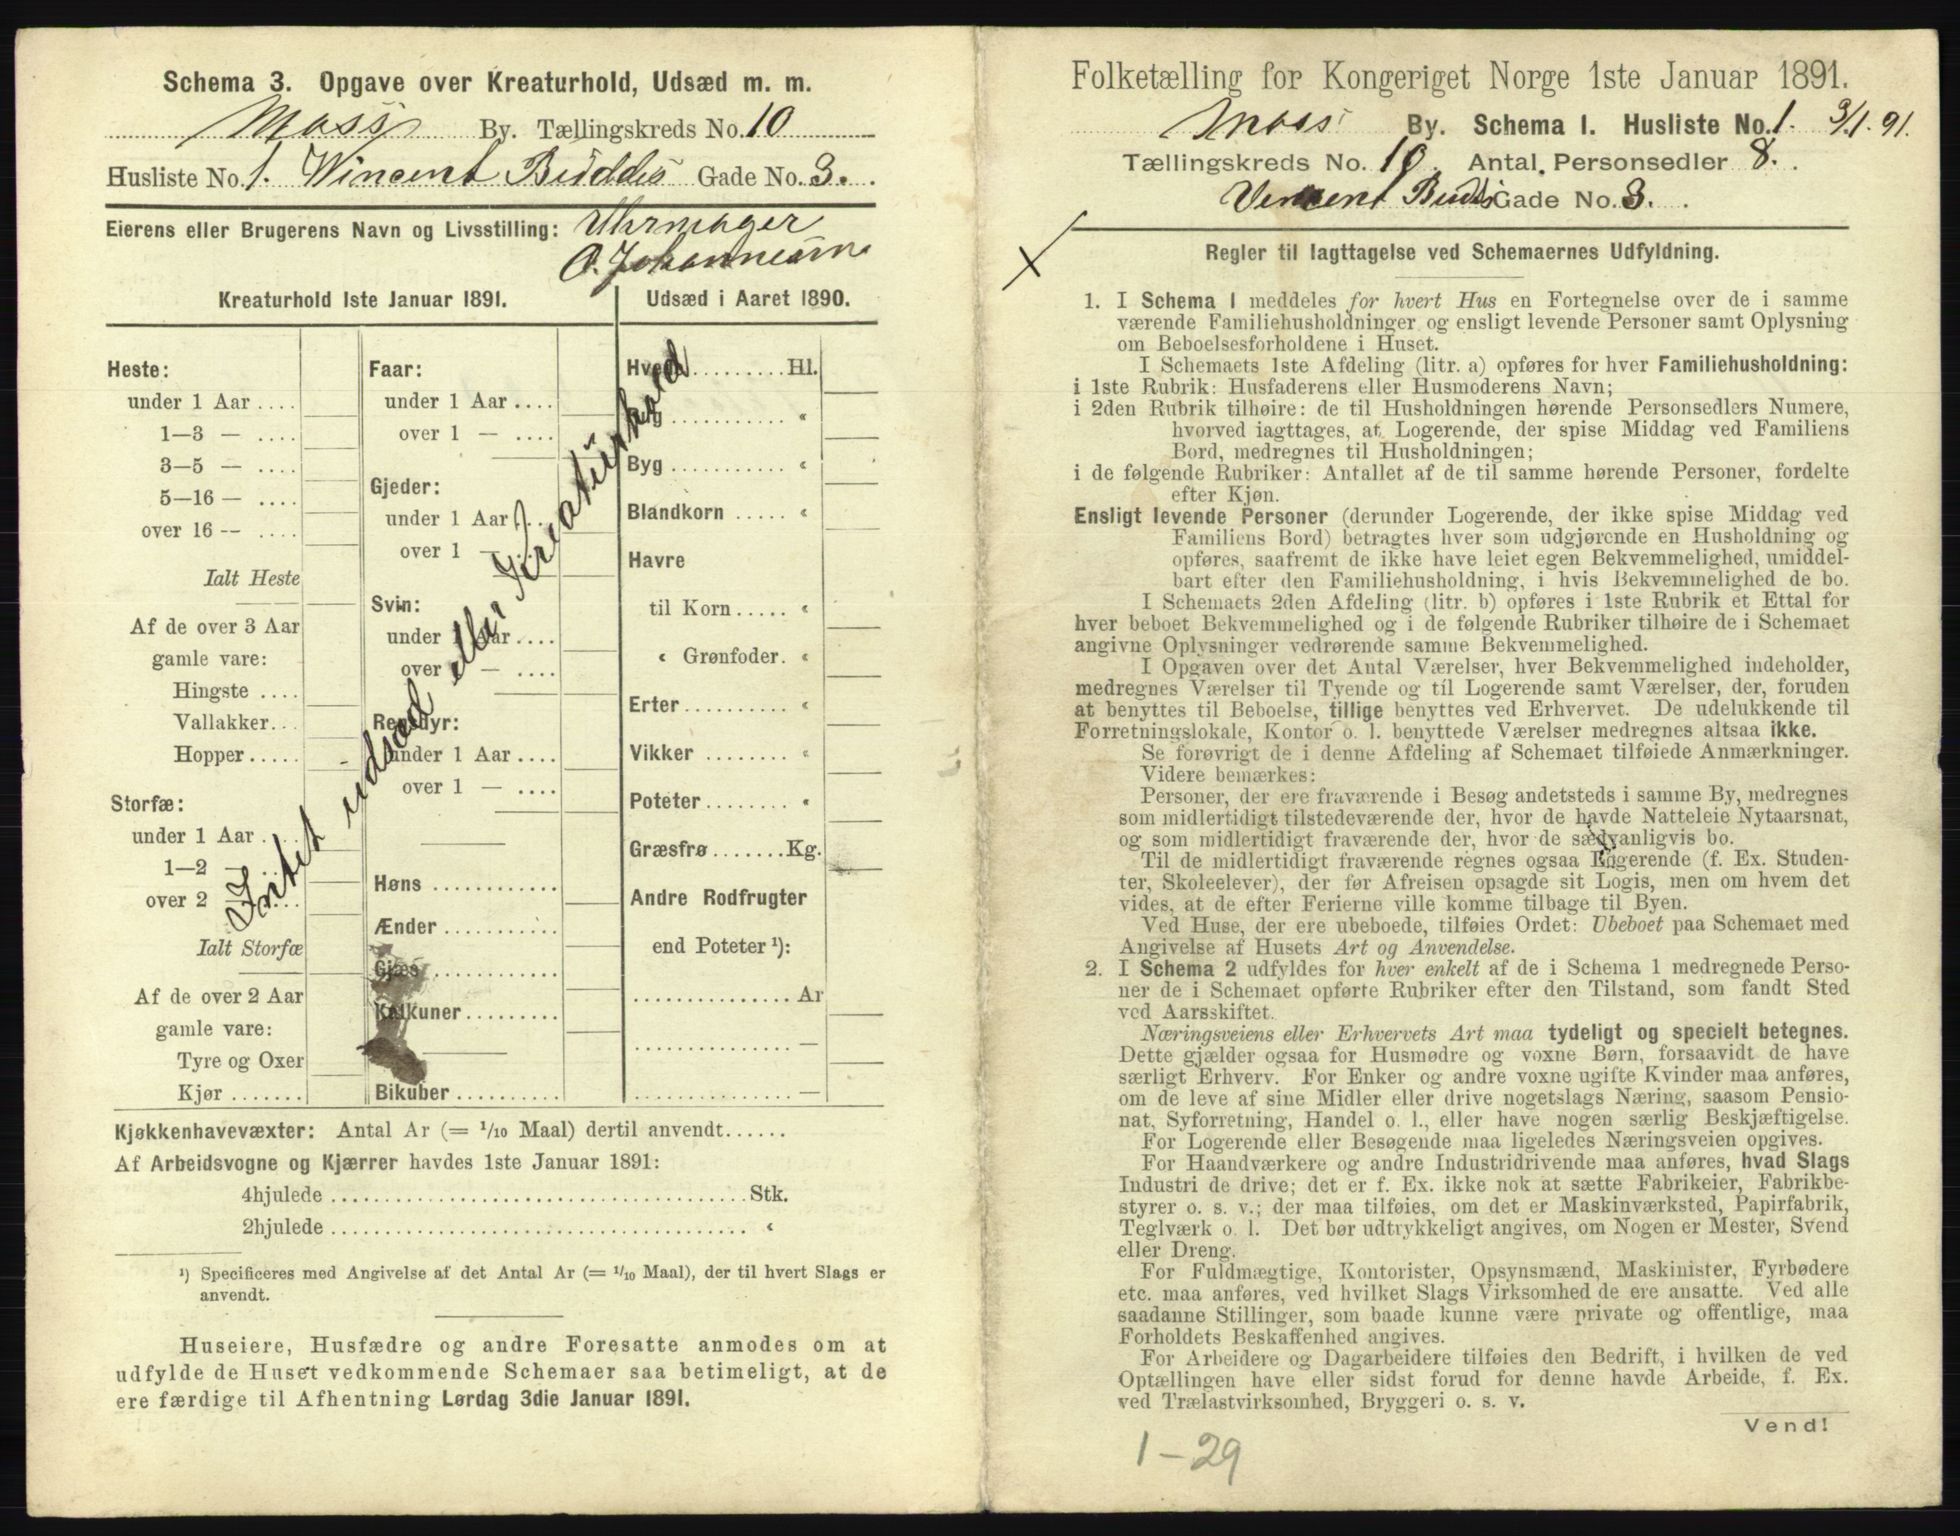 Schema 3. Opgave over Kreaturhold, Udsæd m. m.
Moss By. Tællingskreds No. 10
Husliste No. 1. Wincent Buddes Gade No. 3.
Eierens eller Brugerens Navn og Livsstilling: Uhrmager
O. Johannesen
Kreaturhold 1ste Januar 1891.
Heste:
under 1 Aar ....
1—3 — ....
3—5 — ....
5—16 — ....
over 16 -- ....
Ialt Heste
Af de over 3 Aar
gamle vare:
Hingste ....
Vallakker...
Hopper.....
Storfæ:
under 1 Aar ....
1—2 —
over 2
Ialt Storfæ
Af de over 2 Aar
gamle vare:
Tyre og Oxer
Kjør .......
Faar:
under 1 Aar ....
over 1 — ....
Gjeder:
under 1 Aar
over 1 —
Svin:
under 1 Aar ....
over — ....
Rensdyr:
under 1 Aar ....
over 1 — ....
Høns ............
Ænder ...........
Gjæs ............
Kalkuner.........
Bikuber ..........
Intet udsæd eller Kreaturhold
Udsæd i Aaret 1890.
Hvede ......... Hl.
Rug ........... «
Byg ........... «
Blandkorn ..... «
Havre
til Korn ..... «
« Grønfoder. «
Erter.......... «
Vikker ........ «
Poteter........ «
Græsfrø ....... Kg.
Andre Rodfrugter
end Poteter ¹):
............... Ar
............... —
............... —
Kjøkkenhavevæxter: Antal Ar (= 1/10 Maal) dertil anvendt......
Af Arbeidsvogne og Kjærrer havdes 1ste Januar 1891:
4hjulede ........................................ Stk.
2hjulede ........................................ «
¹) Specificeres med Angivelse af det Antal Ar (= 1/10 Maal), der til hvert Slags er
anvendt.
Huseiere, Husfædre og andre Foresatte anmodes om at
udfylde de Huset vedkommende Schemaer saa betimeligt, at de
ere færdige til Afhentning Lørdag 3die Januar 1891.
Folketælling for Kongeriget Norge 1ste Januar 1891.
Moss By. Schema I. Husliste No. 1. 3/1. 91.
Tællingskreds No. 10. Antal Personsedler 8.
Vincent Budds Gade No. 3.
Regler til Iagttagelse ved Schemaernes Udfyldning.
1. I Schema I meddeles for hvert Hus en Fortegnelse over de i samme
værende Familiehusholdninger og ensligt levende Personer samt Oplysning
om Beboelsesforholdene i Huset.
I Schemaets 1ste Afdeling (litr. a) opføres for hver Familiehusholdning:
i 1ste Rubrik: Husfaderens eller Husmoderens Navn;
i 2den Rubrik tilhøire: de til Husholdningen hørende Personsedlers Numere,
hvorved iagttages, at Logerende, der spise Middag ved Familiens
Bord, medregnes til Husholdningen;
i de følgende Rubriker: Antallet af de til samme hørende Personer, fordelte
efter Kjøn.
Ensligt levende Personer (derunder Logerende, der ikke spise Middag ved
Familiens Bord) betragtes hver som udgjørende en Husholdning og
opføres, saafremt de ikke have leiet egen Bekvemmelighed, umiddel-
bart efter den Familiehusholdning, i hvis Bekvemmelighed de bo.
I Schemaets 2den Afdeling (litr. b) opføres i 1ste Rubrik et Ettal for
hver beboet Bekvemmelighed og i de følgende Rubriker tilhøire de i Schemaet
angivne Oplysninger vedrørende samme Bekvemmelighed.
I Opgaven over det Antal Værelser, hver Bekvemmelighed indeholder,
medregnes Værelser til Tyende og til Logerende samt Værelser, der, foruden
at benyttes til Beboelse, tillige benyttes ved Erhvervet. De udelukkende til
Forretningslokale, Kontor o. l. benyttede Værelser medregnes altsaa ikke.
Se forøvrigt de i denne Afdeling af Schemaet tilføiede Anmærkninger.
Videre bemærkes:
Personer, der ere fraværende i Besøg andetsteds i samme By, medregnes
som midlertidigt tilstedeværende der, hvor de havde Natteleie Nytaarsnat,
og som midlertidigt fraværende der, hvor de sædvanligvis bo.
Til de midlertidigt fraværende regnes ogsaa Logerende (f. Ex. Studen-
ter, Skoleelever), der før Afreisen opsagde sit Logis, men om hvem det
vides, at de efter Ferierne ville komme tilbage til Byen.
Ved Huse, der ere ubeboede, tilføies Ordet: Ubeboet paa Schemaet med
Angivelse af Husets Art og Anvendelse.
2. I Schema 2 udfyldes for hver enkelt af de i Schema 1 medregnede Perso-
ner de i Schemaet opførte Rubriker efter den Tilstand, som fandt Sted
ved Aarsskiftet.
Næringsveiens eller Erhvervets Art maa tydeligt og specielt betegnes.
Dette gjælder ogsaa for Husmødre og voxne Børn, forsaavidt de have
særligt Erhverv. For Enker og andre voxne ugifte Kvinder maa anføres,
om de leve af sine Midler eller drive nogetslags Næring, saasom Pensio-
nat, Syforretning, Handel o. l., eller have nogen særlig Beskjæftigelse.
For Logerende eller Besøgende maa ligeledes Næringsveien opgives.
For Haandværkere og andre Industridrivende maa anføres, hvad Slags
Industri de drive; det er f. Ex. ikke nok at sætte Fabrikeier, Fabrikbe-
styrer o. s. v.; der maa tilføies, om det er Maskinværksted, Papirfabrik,
Teglværk o. l. Det bør udtrykkeligt angives, om Nogen er Mester, Svend
eller Dreng.
For Fuldmægtige, Kontorister, Opsynsmænd, Maskinister, Fyrbødere
etc. maa anføres, ved hvilket Slags Virksomhed de ere ansatte. Ved alle
saadanne Stillinger, som baade kunne være private og offentlige, maa
Forholdets Beskaffenhed angives.
For Arbeidere og Dagarbeidere tilføies den Bedrift, i hvilken de ved
Optællingen have eller sidst forud for denne havde Arbeide, f. Ex.
ved Trælastvirksomhed, Bryggeri o. s. v.
Vend!
1 — 29